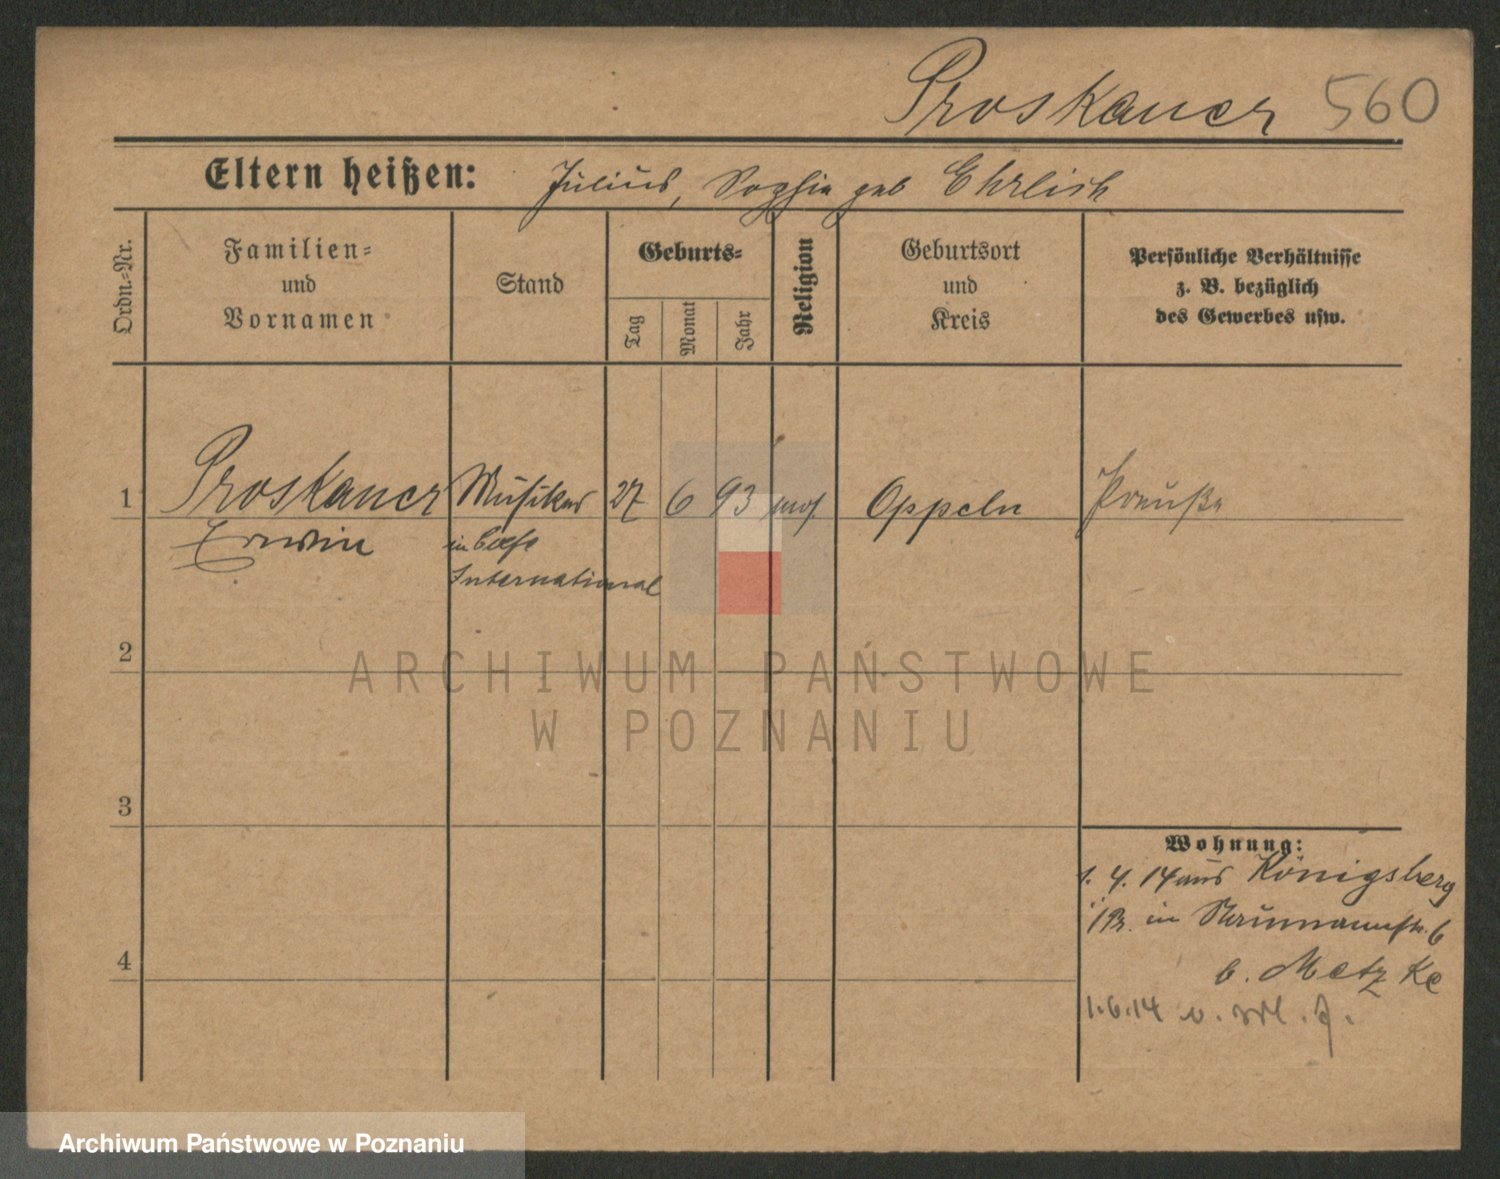 Proskauer 560
Eltern heißen: Julius, Sophie geb Ehrlich
Ordn.-Nr.
Familien-
und
Vornamen
Stand
Geburts-
Tag
Monat
Jahr
Religion
Geburtsort
und
Kreis
Persönliche Verhältnisse
z. B. bezüglich
des Gewerbes usw.
1 Proskauer Musiker 27 6 93 mos. Oppeln Preuße
Erwin in Cafe
International
2
3
4
Wohnung:
1. 4. 14 aus Königsberg
i/Pr. in 6
b. Metzke
1.6.14
ARCHIWUM PAŃSTWOWE
W POZNANIU
Archiwum Państwowe w Poznaniu